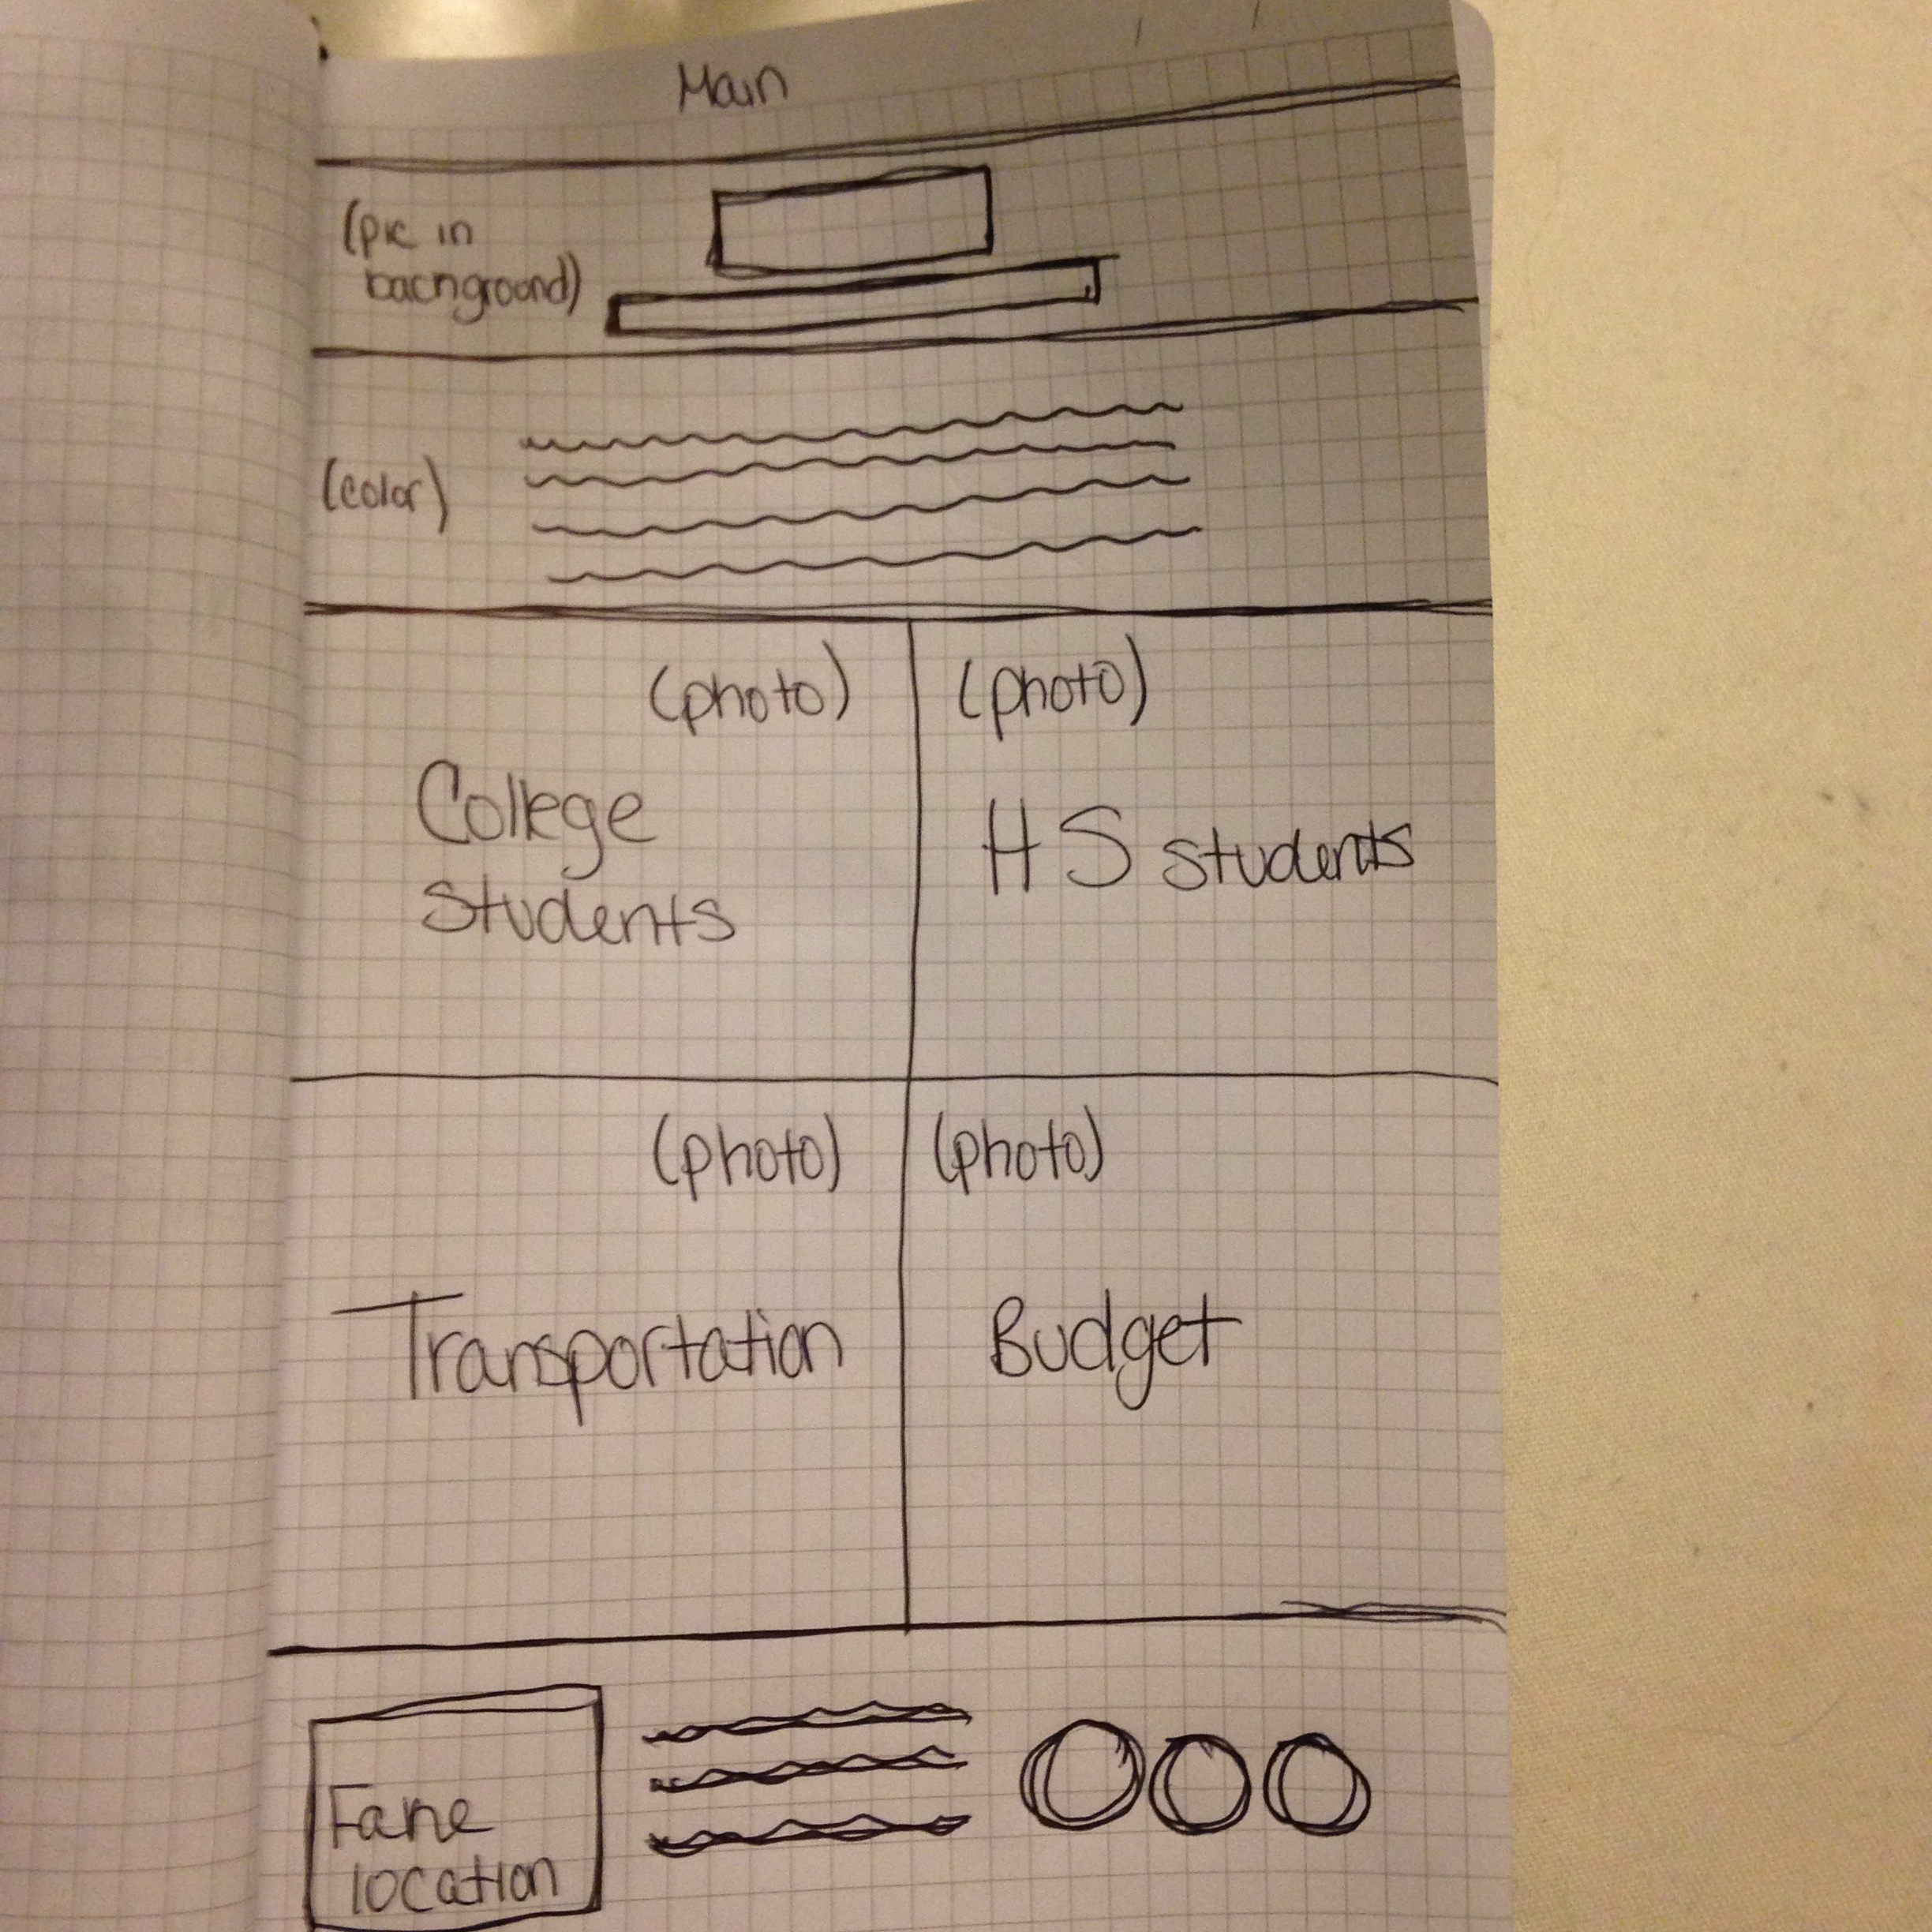 Main
(pic in
background)
(color)
(photo)
(photo)
College
students
HS students
(photo)
(photo)
Transportation
Budget
Fake
location